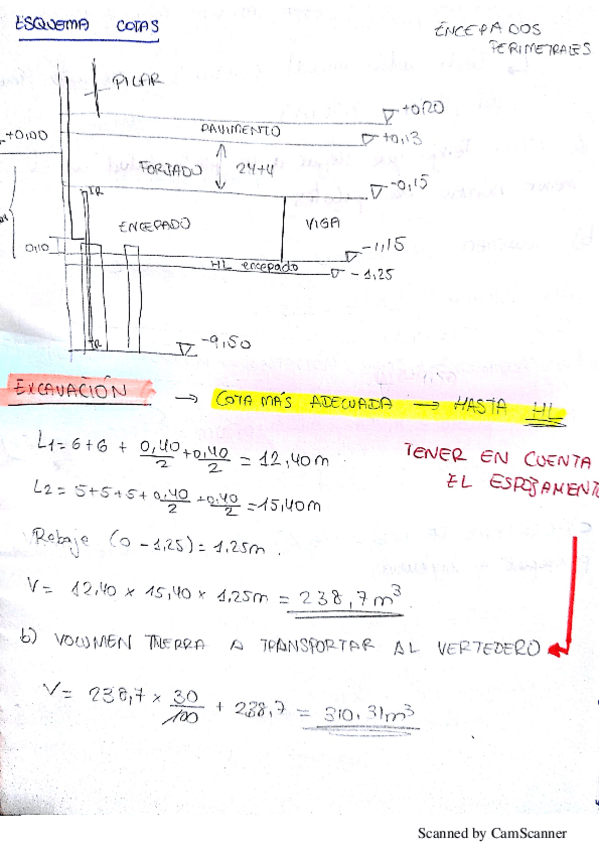 ESQUEMA COTAS
ENCEPADOS
PERIMETRALES
PILAR
+0,20
+0,00
PAVIMENTO
+0,13
FORJADO 24+4
-0,15
TR
ENCEPADO
VIGA
0,10
-1,15
HL encepado
-1,25
TR
-9,50
EXCAVACIÓN → COTA MÁS ADECUADA → HASTA HL
L1=6+6+0,40/2+0,40/2=12,40m.
TENER EN CUENTA
EL ESPOJAMENT
L2=5+5+5+0,40/2+0,40/2=15,40m
Rebaje (0-1,25)=1,25m.
V= 12,40 x 15,40 x 1,25m = 238,7m³
b) VOLUMEN TIERRA A TRANSPORTAR AL VERTEDERO
V= 238,7 x 30/100 + 238,7 = 310,31m³
Scanned by CamScanner